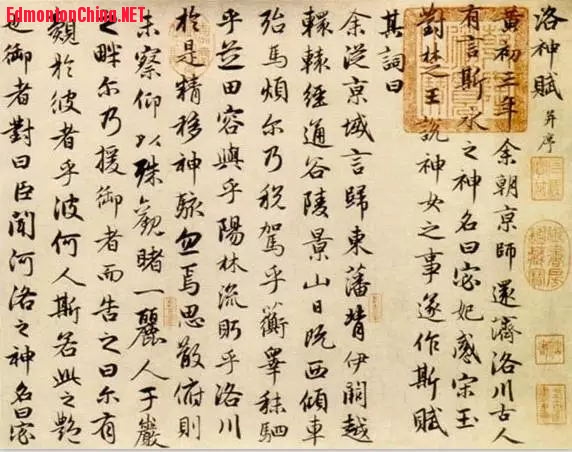 EdmontonChina.NET
洛神賦 并序
黃初三年余朝京師還濟洛川古人
有言斯水之神名曰宓妃感宋玉
對楚王說神女之事遂作斯賦
其詞曰
余從京域言歸東藩背伊闕越
轘轅經通谷陵景山日既西傾車
殆馬煩尔乃稅駕乎蘅皋秣駟
乎芝田容與乎陽林流眄乎洛川
於是精移神駭忽焉思散俯則
未察仰以殊觀睹一麗人于巖
之畔尔乃援御者而告之曰尔有
覿於彼者乎彼何人斯若此之艷
也御者對曰臣聞河洛之神名曰宓